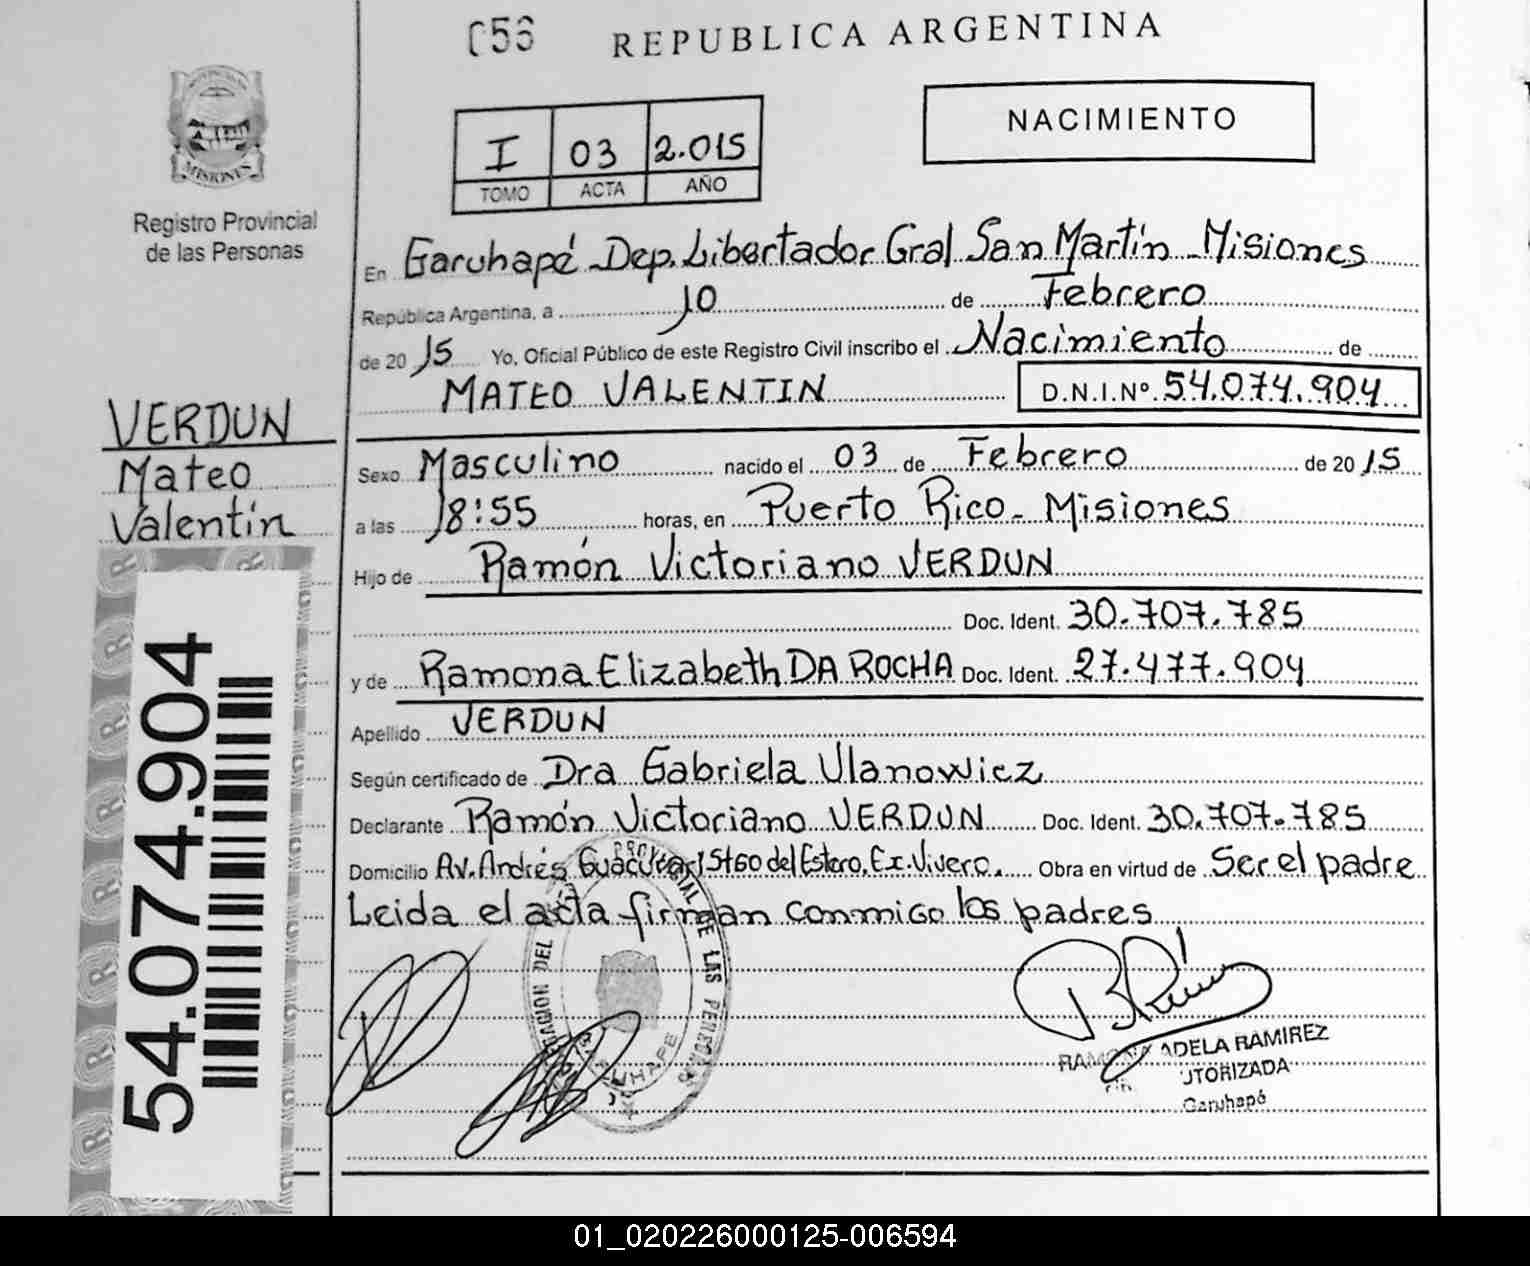 056
REPUBLICA ARGENTINA
PROVINCIA
MISIONES
Registro Provincial
de las Personas
NACIMIENTO
I 03 2.015
TOMO ACTA AÑO
En Garuhapé Dep. Libertador Gral San Martín - Misiones
República Argentina, a 10 de Febrero
de 20 15 Yo, Oficial Público de este Registro Civil inscribo el Nacimiento de
MATEO VALENTIN D.N.I.Nº 54.074.904
VERDUN
Mateo
Valentín
Sexo Masculino nacido el 03 de Febrero de 20 15
a las 18:55 horas, en Puerto Rico - Misiones
Hijo de Ramón Victoriano VERDUN
Doc. Ident. 30.707.785
y de Ramona Elizabeth DA ROCHA Doc. Ident. 27.477.904
Apellido VERDUN
Según certificado de Dra Gabriela Ulanowicz
Declarante Ramón Victoriano VERDUN Doc. Ident. 30.707.785
Domicilio Av. Andrés Guacurarí Stgo del Estero, Ex. Vivero. Obra en virtud de Ser el padre
Leida el acta firman conmigo los padres
54.074.904
DE LAS PERSONAS
GARUHAPE
RAMONA ADELA RAMIREZ
UTORIZADA
Garuhapé
01_020226000125-006594